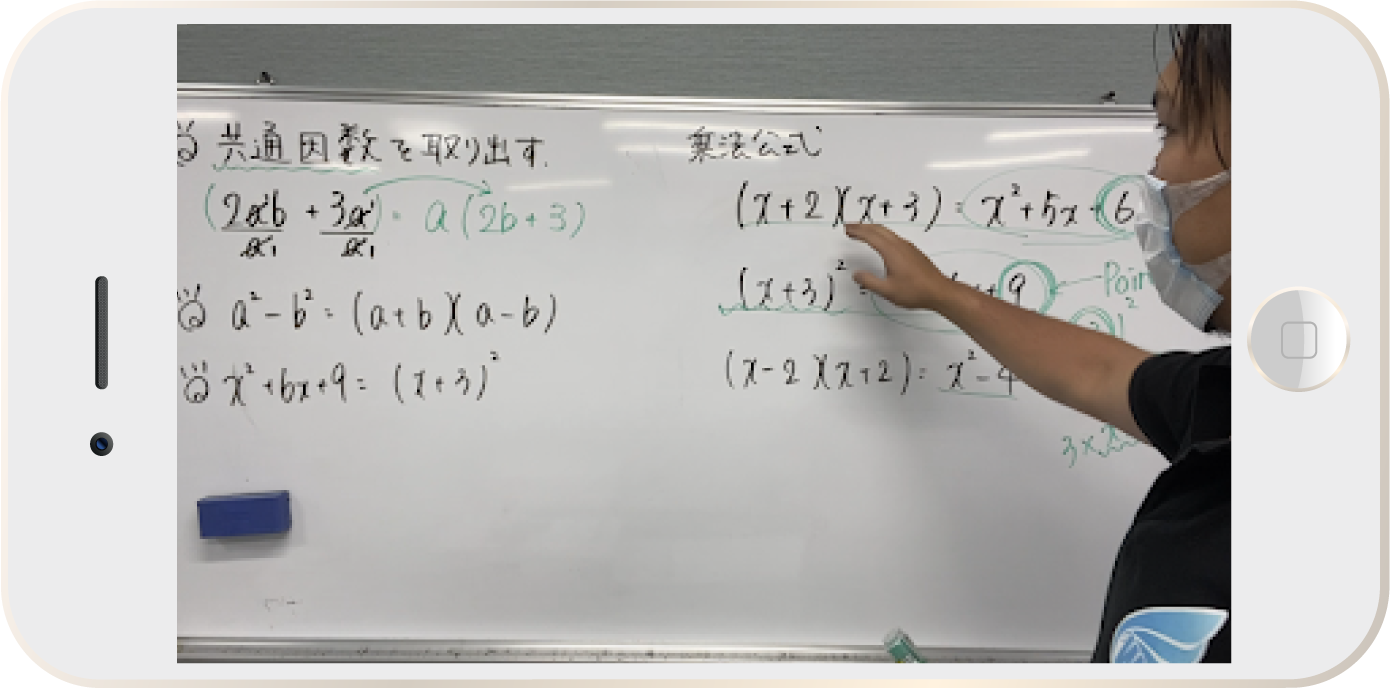 共通因数を取り出す.
(2ab + 3a) = a(2b+3)
a a
a²-b² = (a+b)(a-b)
x²+6x+9 = (x+3)²
乗法公式
(x+2)(x+3) = x²+5x+6
(x+3)² = +9
(x-2)(x+2) = x²-4
3×